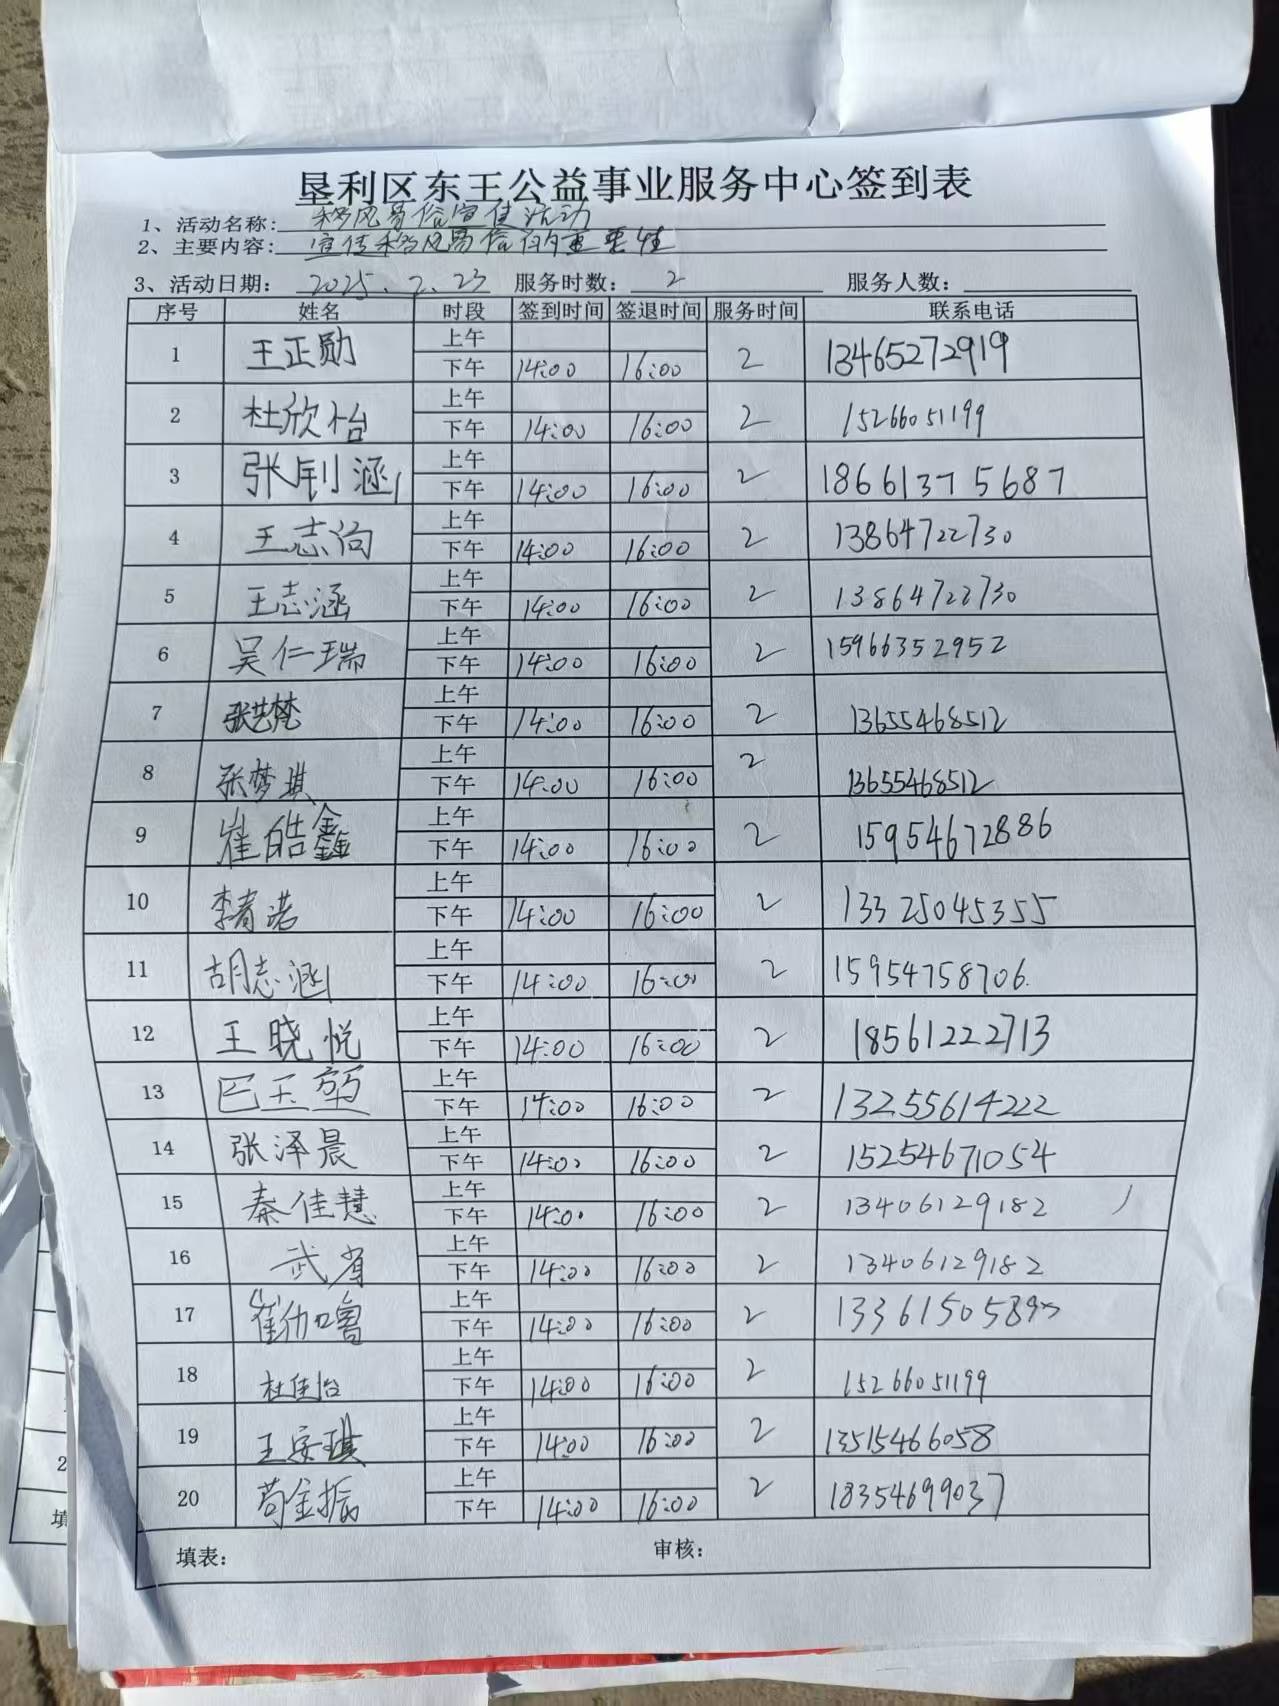 垦利区东王公益事业服务中心签到表
1、活动名称: 移风易俗宣传活动
2、主要内容: 宣传移风易俗的重要性
3、活动日期: 2025.2.23 服务时数: 2 服务人数:
序号 姓名 时段 签到时间 签退时间 服务时间 联系电话
1 王正勋 上午 2 13465272919
下午 14:00 16:00
2 杜欣怡 上午 2 15266051199
下午 14:00 16:00
3 张钊涵 上午 2 18661375687
下午 14:00 16:00
4 王志尚 上午 2 13864722730
下午 14:00 16:00
5 王志涵 上午 2 13864722730
下午 14:00 16:00
6 吴仁瑞 上午 2 15966352952
下午 14:00 16:00
7 张艺梵 上午 2 13655468512
下午 14:00 16:00
8 张梦琪 上午 2 13655468512
下午 14:00 16:00
9 崔皓鑫 上午 2 15954672886
下午 14:00 16:00
10 李青诺 上午 2 13325045355
下午 14:00 16:00
11 胡志涵 上午 2 15954758706.
下午 14:00 16:00
12 王晓悦 上午 2 18561222713
下午 14:00 16:00
13 巴玉堃 上午 2 13255614222
下午 14:00 16:00
14 张泽晨 上午 2 15254671054
下午 14:00 16:00
15 秦佳慧 上午 2 13406129182
下午 14:00 16:00
16 武省 上午 2 13406129182
下午 14:00 16:00
17 上午 2
下午 14:00 16:00
18 杜佳怡 上午 2 15266051199
下午 14:00 16:00
19 王安琪 上午 2 13515466058
下午 14:00 16:00
20 苟金振 上午 2 18354699037
下午 14:00 16:00
填表: 审核:
2
填